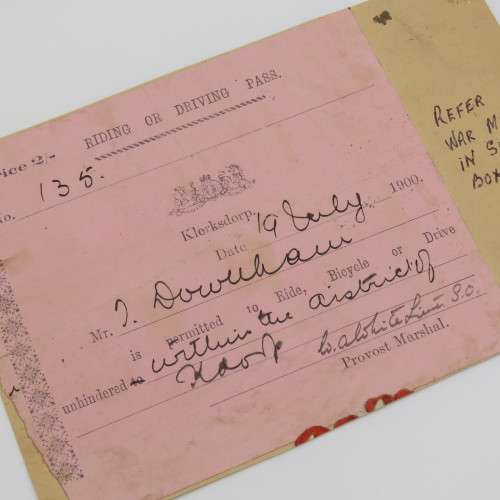 RIDING OR DRIVING PASS.
ice 2/-
No. 135.
Klerksdorp, 19 July 1900.
Date
Mr. J. Downham
is permitted to Ride, Bicycle or Drive
unhindered to within the district of
Kdorp
W. A. White Lieut S.O.
Provost Marshal.
REFER
WAR M
IN S
BOX